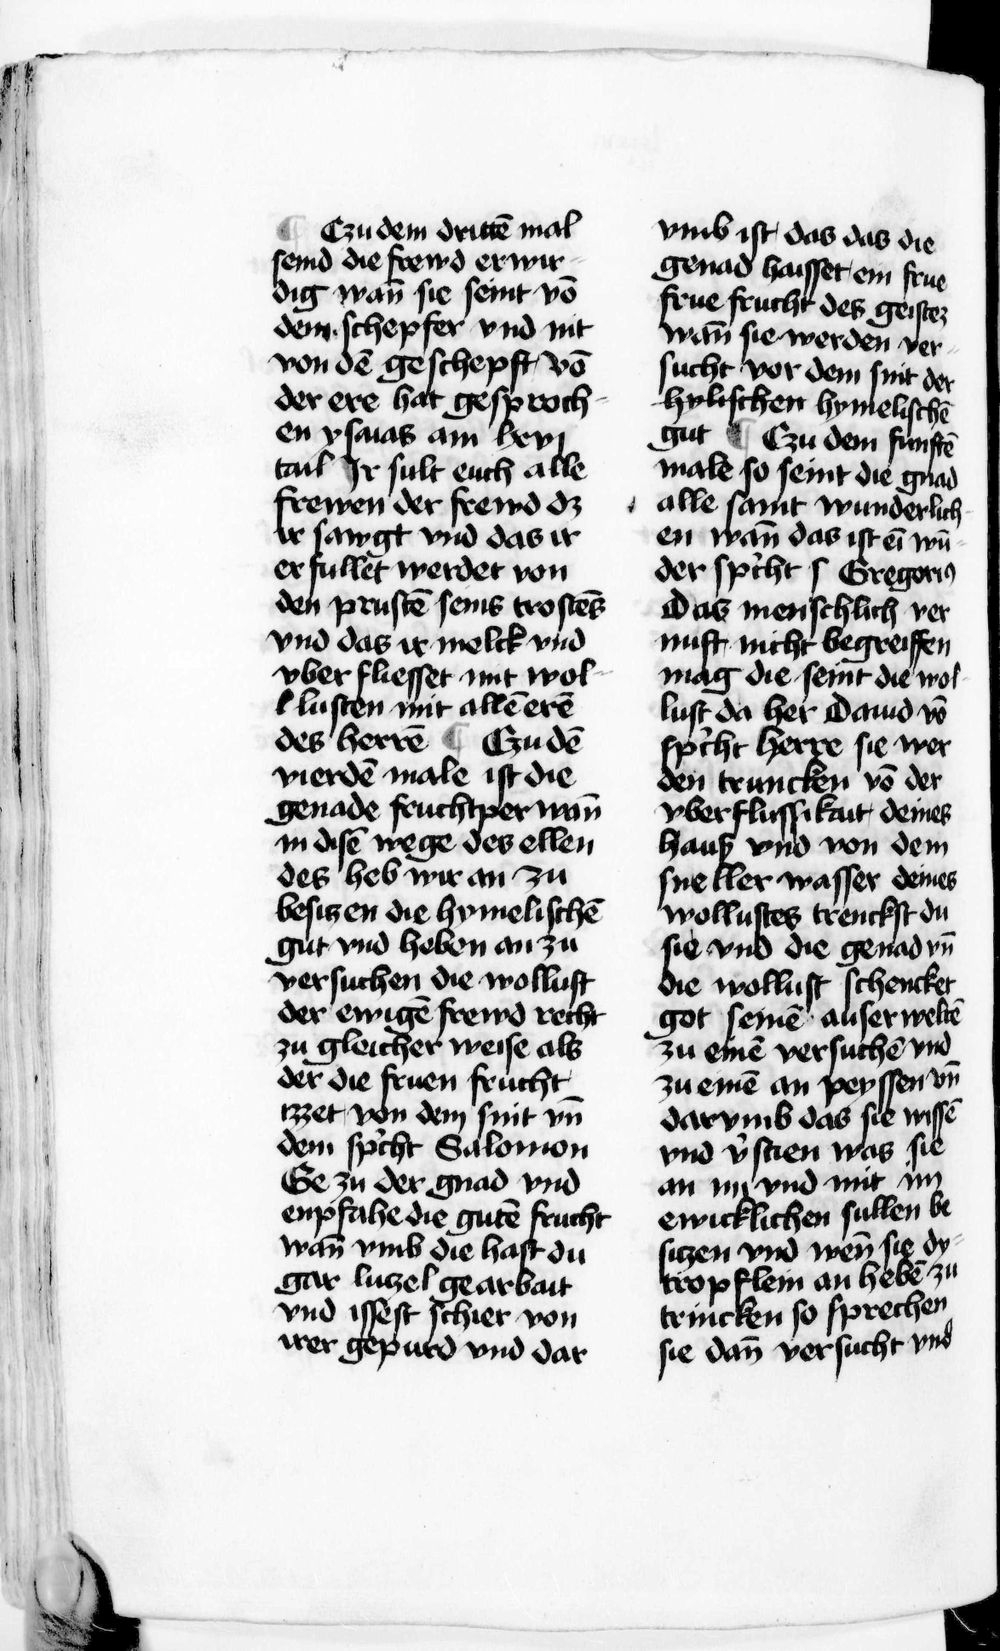 ¶ Czu dem drittē mal
seind die frewd erwir-
dig wañ sie seint vō
dem schepfer vnd nit
von dē geschepft vō
der ere hat gesproch-
en ysaias am lxvj
tail Ir sult euch alle
frewen der frewd dz
ir sawgt vnd das ir
erfullet werdet von
den prustē seins trostes
vnd das ir melck vnd
vber fliesset mit wol-
llusten mit allē erē
des herrē ¶ Czu dē
vierdē male ist die
genade fruchtper wañ
in disē wege des ellen
des heb wir an zu
besitzen die hymelischē
gut vnd heben an zu
versuchen die wollust
der ewigē frewd recht
zu gleicher weise als
der die fruen frucht
izzet von dem snit vñ
dem spͥcht Salomon
Ge zu der gnad vnd
enpfahe die gutē frucht
wañ vmb die hast du
gar lutzel gearbait
vnd issest schier von
irer gepurd vnd dar
vmb ist das das die
genad haisset ein frue
frue frucht des geistez
wañ sie werden ver-
sucht vor dem snit der
hylischen hymelischē
gut ¶ Czu dem funftē
male so seint die gnad
alle samt wunderlich-
en wañ das ist eī wū-
der spͥcht s Gregorius
Das menschlich ver
nuft nicht begreiffen
mag die seint die wol-
lust da her Dauid vō
spͥcht herre sie wer
den truncken vō der
vberflussikait deines
hauß vnd von dem
sneller wasser deines
wollustes trenckst du
sie vnd die genad vñ
die wollust schencket
got seinē auserweltē
zu einē versuchē vnd
zu einē an peyssen vñ
darvmb das sie wissē
vnd v̓sten was sie
an im vnd mit im
ewicklichen sullen be
sitzen vnd wen̄ sie dy-
tropflein an hebē zu
trincken so sprechen
sie dañ versucht vnd